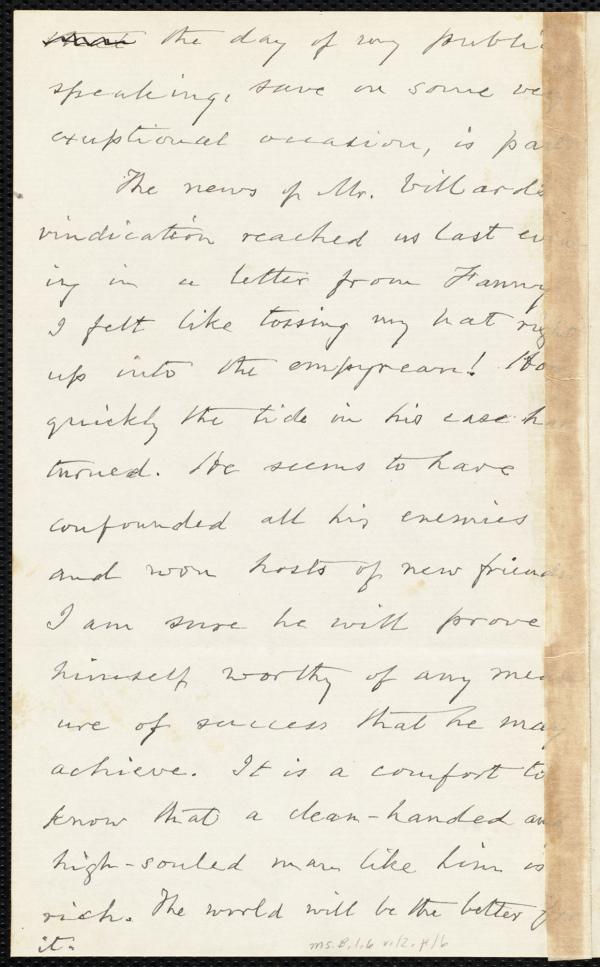 the day of my public
speaking, save on some very
exceptional occasion, is past.
The news of Mr. Villard's
vindication reached us last even-
ing in a letter from Fanny
I felt like tossing my hat right
up into the empyrean! How
quickly the tide in his case has
turned. He seems to have
confounded all his enemies
and won hosts of new friends.
I am sure he will prove
himself worthy of any meas-
ure of success that he may
achieve. It is a comfort to
know that a clean-handed and
high-souled man like him is
rich. The world will be the better for
it.